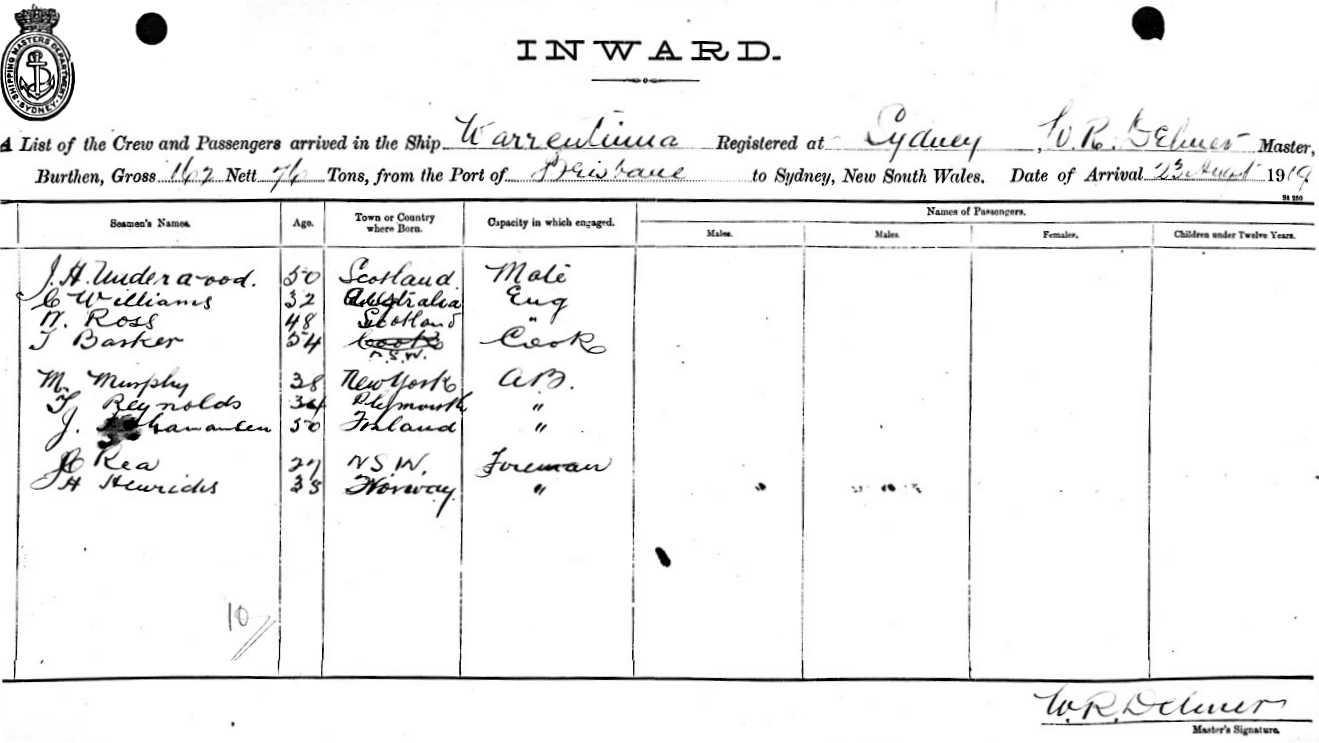 SHIPPING MASTERS DEPARTMENT SYDNEY
INWARD.
A List of the Crew and Passengers arrived in the Ship Warrentinna Registered at Sydney, W. R. Delmer Master,
Burthen, Gross 162 Nett 76 Tons, from the Port of Brisbane to Sydney, New South Wales. Date of Arrival 23 August 1919
Names of Passengers.
Seamen's Names. Age. Town or Country where Born. Capacity in which engaged. Males. Males. Females. Children under Twelve Years.
J. H. Underwood. 50 Scotland. Mate
C Williams 32 Australia Eng
W. Ross 48 Scotland "
T Barker 54 Cook Cook
N.S.W.
M. Murphy 38 New York A.B.
T. Reynolds 34 Plymouth "
J. 50 Finland "
C Rea 27 N.S.W. Foreman
H Henrichs 33 Norway. "
10
W. R. Delmer
Master's Signature.